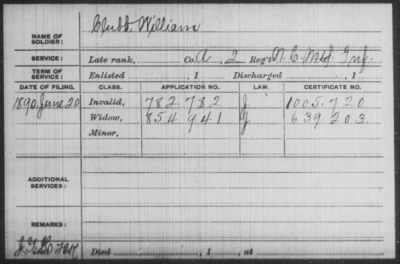 Clubb, William
NAME OF SOLDIER:
SERVICE: Late rank, Co. A, 2 Reg't N. C. Mtd. Inf.
TERM OF SERVICE: Enlisted , 1 Discharged , 1
DATE OF FILING. CLASS. APPLICATION NO. LAW. CERTIFICATE NO.
1890 June 20 Invalid, 782.782 1005.720
Widow, 854.941 639.203
Minor,
ADDITIONAL SERVICES:
REMARKS:
Died , 1 , at